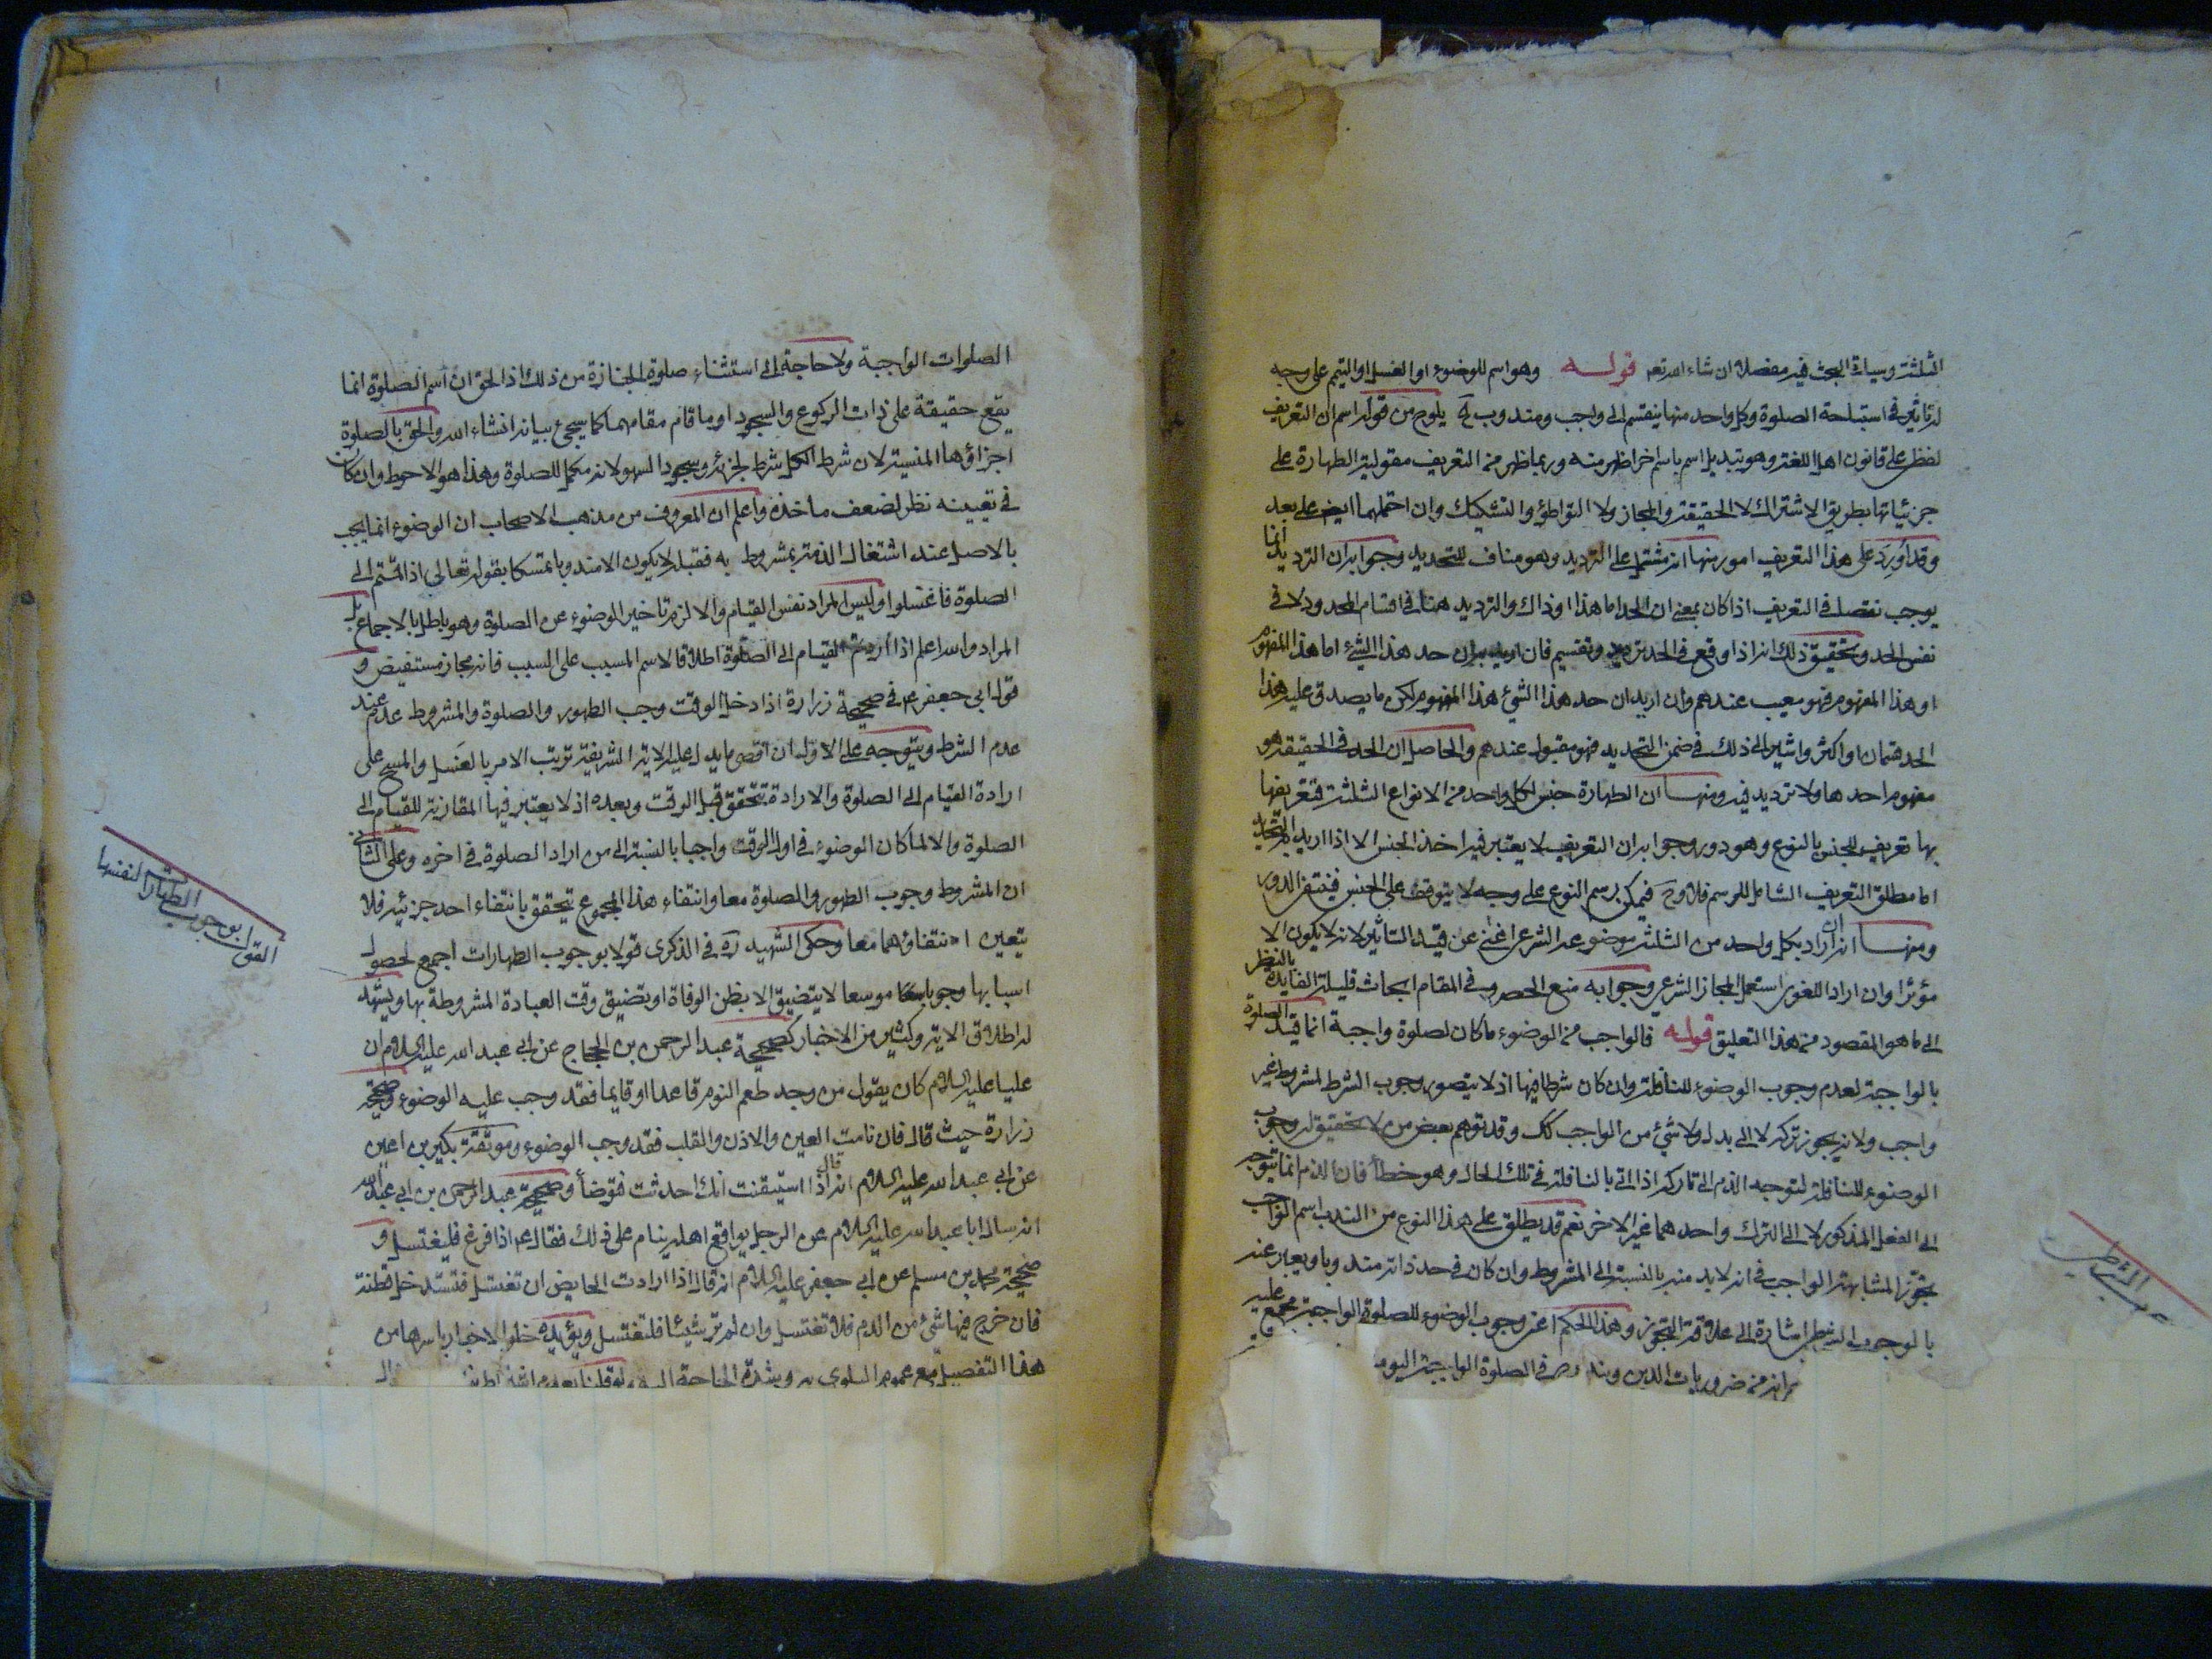 الثلثة وسياتي البحث فيه مفصلا ان شاء الله تعه قوله وهو اسم للوضوء او الغسل او التيمم على وجه
له تاثير في استباحة الصلوة وكل واحد منها ينقسم الى واجب ومندوب يلوح من قوله اسم ان التعريف
لفظي على قانون اهل اللغة وهو تبديل اسم باسم اخر اظهر منه وربما ظهر من التعريف مقولية الطهارة على
جزئياتها بطريق الاشتراك لا الحقيقة والمجاز ولا التواطؤ والتشكيك وان احتملهما ايض على بعد
وقد اورد على هذا التعريف امور منها انه مشتمل على الترديد وهو مناف للتحديد وجوابه ان الترديد انما
يوجب نقصا في التعريف اذا كان بمعنى ان الحد اما هذا او ذاك والترديد هنا في اقسام المحدود لا في
نفس الحد وتحقيق ذلك انه اذا وقع في الحد ترديد وتقسيم فان اريد به ان حد هذا الشئ اما هذا المفهوم
او هذا المفهوم فهو معيب عندهم وان اريد ان حد هذا الشئ هذا المفهوم لكن ما يصدق عليه هذا
الحد قسمان او اكثر واشير الى ذلك في ضمن التحديد فهو مقبول عندهم والحاصل ان الحد في الحقيقة هو
مفهوم احدها ولا ترديد فيه ومنها ان الطهارة جنس لكل واحد من الانواع الثلثة فتعريفها
بها تعريف للجنس بالنوع وهو دور وجوابه ان التعريف لا يعتبر فيه اخذ الجنس الا اذا اريد به التحديد
اما مطلق التعريف الشامل للرسم فلا وح فيمكن رسم النوع على وجه لا يتوقف على الجنس فينتفي الدور
ومنها انه ان اراد بكل واحد من الثلثة موضوعه الشرعي اغنى عن قيد التأثير لانه لا يكون الا
مؤثرا وان اراد اللغوي استعمل المجاز الشرعي وجوابه منع الحصر وفي المقام ابحاث قليلة الفايدة بالنظر
الى ما هو المقصود من هذا التعليق قوله فالواجب من الوضوء ما كان لصلوة واجبة انما قيد الصلوة
بالواجبة لعدم وجوب الوضوء للنافلة وان كان شرطا فيها اذ لا يتصور وجوب الشرط لمشروط غير
واجب ولانه يجوز تركه لا الى بدل ولا شئ من الواجب كك وقد توهم بعض من لا تحقيق له وجوب
الوضوء للنافلة لتوجه الذم الى تاركه اذا اتى بالنافلة في تلك الحال وهو خطأ فان الذم انما يتوجه
الى الفعل المذكور لا الى الترك واحدهما غير الاخر نعم قد يطلق على هذا النوع من الندب اسم الواجب
تجوزا لمشابهته الواجب في انه لا بد منه بالنسبة الى المشروط وان كان في حد ذاته مندوبا ويعبر عنه
بالوجوب الشرطي اشارة الى علاقة التجوز وهذا الحكم اعني وجوب الوضوء للصلوة الواجبة مجمع عليه
انه من ضروريات الدين في الصلوة الواجبة
الشرطي
الصلوات الواجبة ولا حاجة الى استثناء صلوة الجنازة من ذلك اذ الحق ان اسم الصلوة انما
يقع حقيقة على ذات الركوع والسجود او ما قام مقامهما كما سيجئ بيانه انشاء الله والحق بالصلوة
اجزاؤها المنسية لان شرط الكل شرط لجزئه وسجود السهو لانه مكمل للصلوة وهذا هو الاحوط وان كان
في تعيينه نظر لضعف ماخذه واعلم ان المعروف من مذهب الاصحاب ان الوضوء انما يجب
بالاصل عند اشتغال الذمة بمشروط به فقبله لا يكون الا مندوبا تمسكا بقوله تعالى اذا قمتم الى
الصلوة فاغسلوا وليس المراد نفس القيام والا لزم تاخير الوضوء عن الصلوة وهو باطل بالاجماع بل
المراد والله اعلم اذا اردتم القيام الى الصلوة اطلاقا لاسم المسبب على السبب فانه مجاز مستفيض و
قول ابي جعفر ع في صحيحة زرارة اذا دخل الوقت وجب الطهور والصلوة والمشروط عدم عند
عدم الشرط ويتوجه على الاول ان اقصى ما يدل عليه الاية الشريفة ترتب الامر بالغسل والمسح على
ارادة القيام الى الصلوة والارادة تتحقق قبل الوقت وبعده اذ لا يعتبر فيها المقارنة للقيام الى
الصلوة والا لما كان الوضوء في اول الوقت واجبا بالنسبة الى من اراد الصلوة في اخره وعلى الثاني
ان المشروط وجوب الطهور والصلوة معا وانتفاء هذا المجموع يتحقق بانتفاء احد جزئيه فلا
يتعين انتفاؤهما معا وحكى الشهيد ره في الذكرى قولا بوجوب الطهارات اجمع لحصول
اسبابها وجوبا موسعا لا يتضيق الا بظن الوفاة او تضيق وقت العبادة المشروطة بها ويشهد
له اطلاق الاية وكثير من الاخبار كصحيحة عبد الرحمن بن الحجاج عن ابي عبد الله عليه السلام ان
عليا عليه السلام كان يقول من وجد طعم النوم قاعدا او قايما فقد وجب عليه الوضوء وصحيحة
زرارة حيث قال فان نامت العين والاذن والقلب فقد وجب الوضوء وموثقة بكير بن اعين
عن ابي عبد الله عليه السلام انه قال اذا استيقنت انك احدثت فتوضأ وصحيحة عبد الرحمن بن ابي عبد الله
انه سال ابا عبد الله عليه السلام عن الرجل يواقع اهله ينام على ذلك فقال ع اذا فرغ فليغتسل و
صحيحة محمد بن مسلم عن ابي جعفر عليه السلام انه قال اذا ارادت الحايض ان تغتسل فتستدخل قطنة
فان خرج فيها شئ من الدم فلا تغتسل وان لم تر شيئا فلتغتسل ويؤيده خلو الاخبار باسرها من
هذا التفصيل مع عموم البلوى به وشدة الحاجة اليه
القول بوجوب الطهارة لنفسها